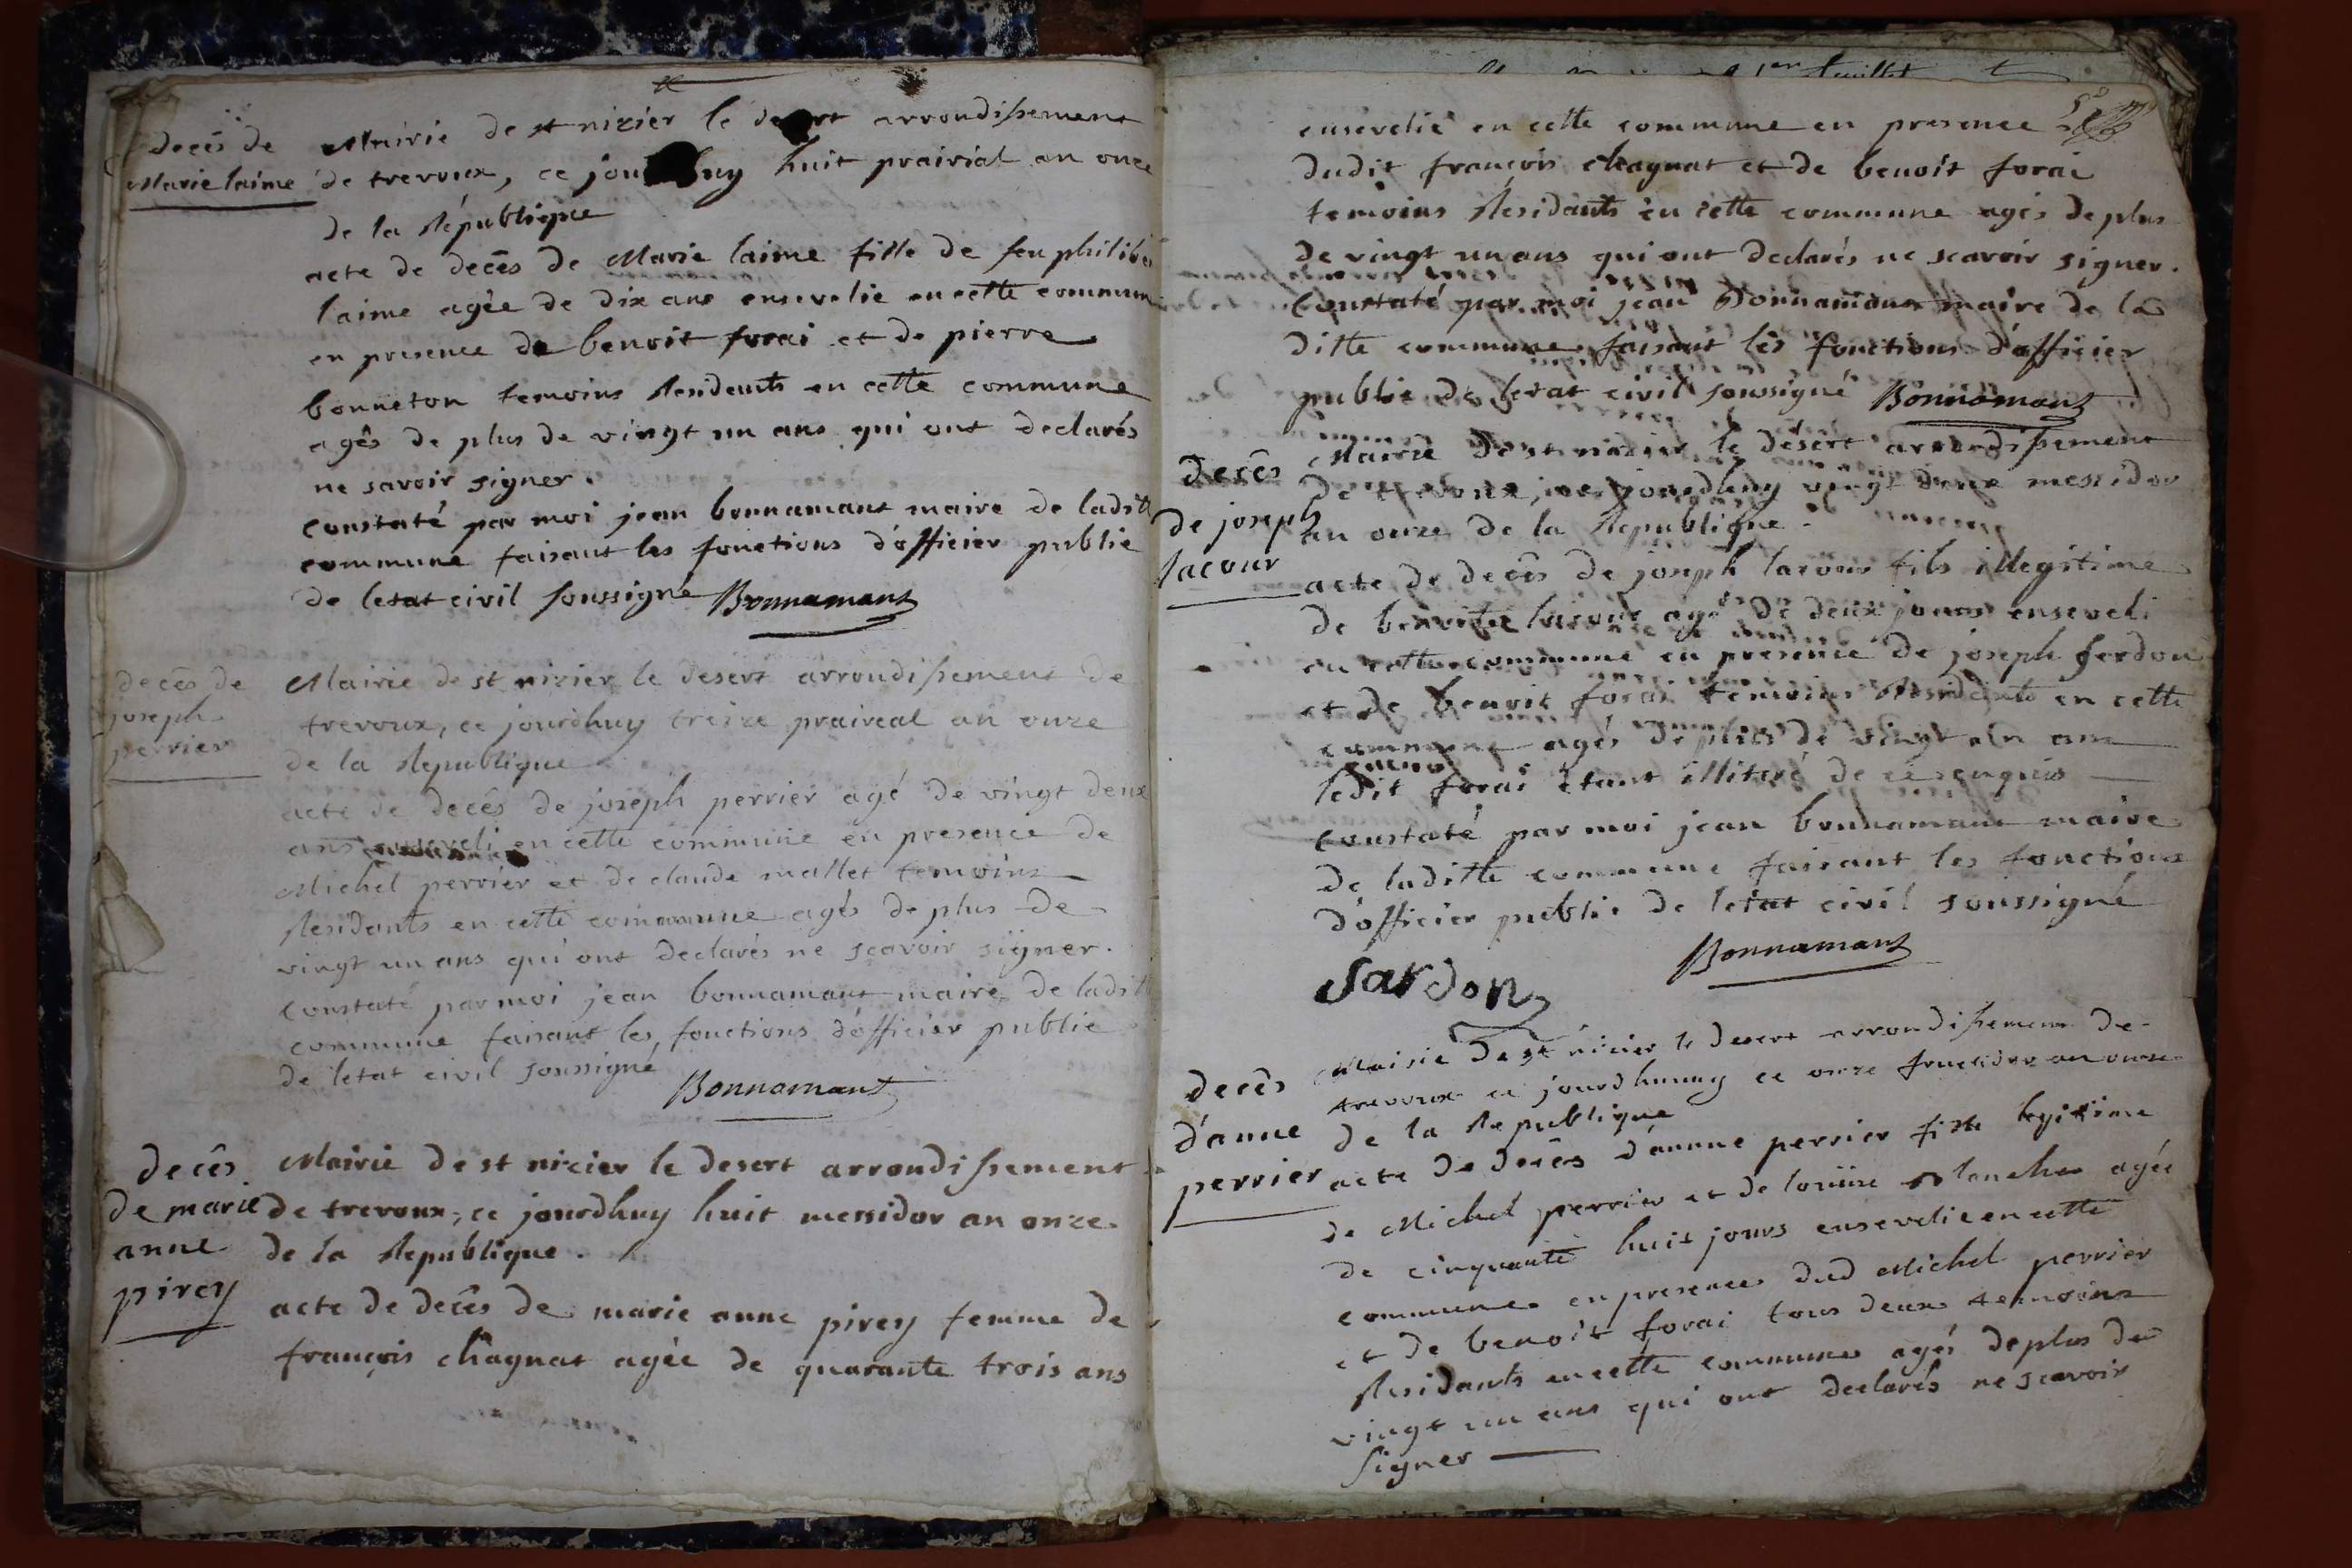 decès de
Marie laime
Mairie de st nizier le desert arrondissement
de trevoux, ce jourdhuy huit prairial an onze
de la République
acte de decès de Marie laime fille de feu philiber
laime agée de dix ans ensevelie en cette commune
en presence de benoit forai et de pierre
bonneton temoins Residents en cette commune
agés de plus de vingt un ans qui ont declarés
ne savoir signer.
constaté par moi jean bonnamant maire de laditte
commune faisant les fonctions d'officier public
de letat civil soussigné Bonnamant
decès de
joseph
perrier
Mairie de st nizier le desert arrondissement de
trevoux, ce jourdhuy treize praireal an onze
de la Republique
acte de decès de joseph perrier agé de vingt deux
ans enseveli en cette commune en presence de
Michel perrier et de claude mallet temoins
Residants en cette commune agés de plus de
vingt un ans qui ont declarés ne scavoir signer.
Constaté par moi jean bonnamant maire de laditte
commune faisant les fonctions d'officier public
de letat civil soussigné
Bonnamant
decès
de marie
anne
pirey
Mairie de st nizier le desert arrondissement
de trevoux, ce jourdhuy huit messidor an onze
de la Republique.
acte de decès de marie anne pirey femme de
françois chagnat agée de quarante trois ans
ensevelie en cette commune en presence
dudit françois chagnat et de benoit forai
temoins Residants en cette commune agés de plus
de vingt un ans qui ont declarés ne scavoir signer.
Constaté par moi jean Bonnamant maire de la
ditte commune faisant les fonctions d'officier
public de letat civil soussigné Bonnamant
decès
de joseph
lacour
Mairie de st nizier le désert arrondissement
de trevoux, ce jourdhuy vingt deux messidor
an onze de la Republique.
acte de decès de joseph lacour fils illegitime
de benoite lacour agé de deux jours enseveli
en cette commune en presence de joseph ferdon
et de benoit forai temoins Residents en cette
commune agés de plus de vingt un ans
ledit forai étant illiteré de ce enquis
constaté par moi jean bonnamant maire
de laditte commune faisant les fonctions
d'officier public de letat civil soussigné
Bonnamant
Sardon
decès
d'anne
perrier
Mairie de st nizier le desert arrondissement de
trevoux ce jourdhuuy ce onze fructidor an onze
de la Republique
acte de decès d'annne perrier fille legitime
de Michel perrier et de agée
de cinquante huit jours ensevelie en cette
commune en presence dud Michel perrier
et de benoit forai tous deux temoins
Residants en cette commune agés de plus de
vingt un ans qui ont declarés ne scavoir
signer